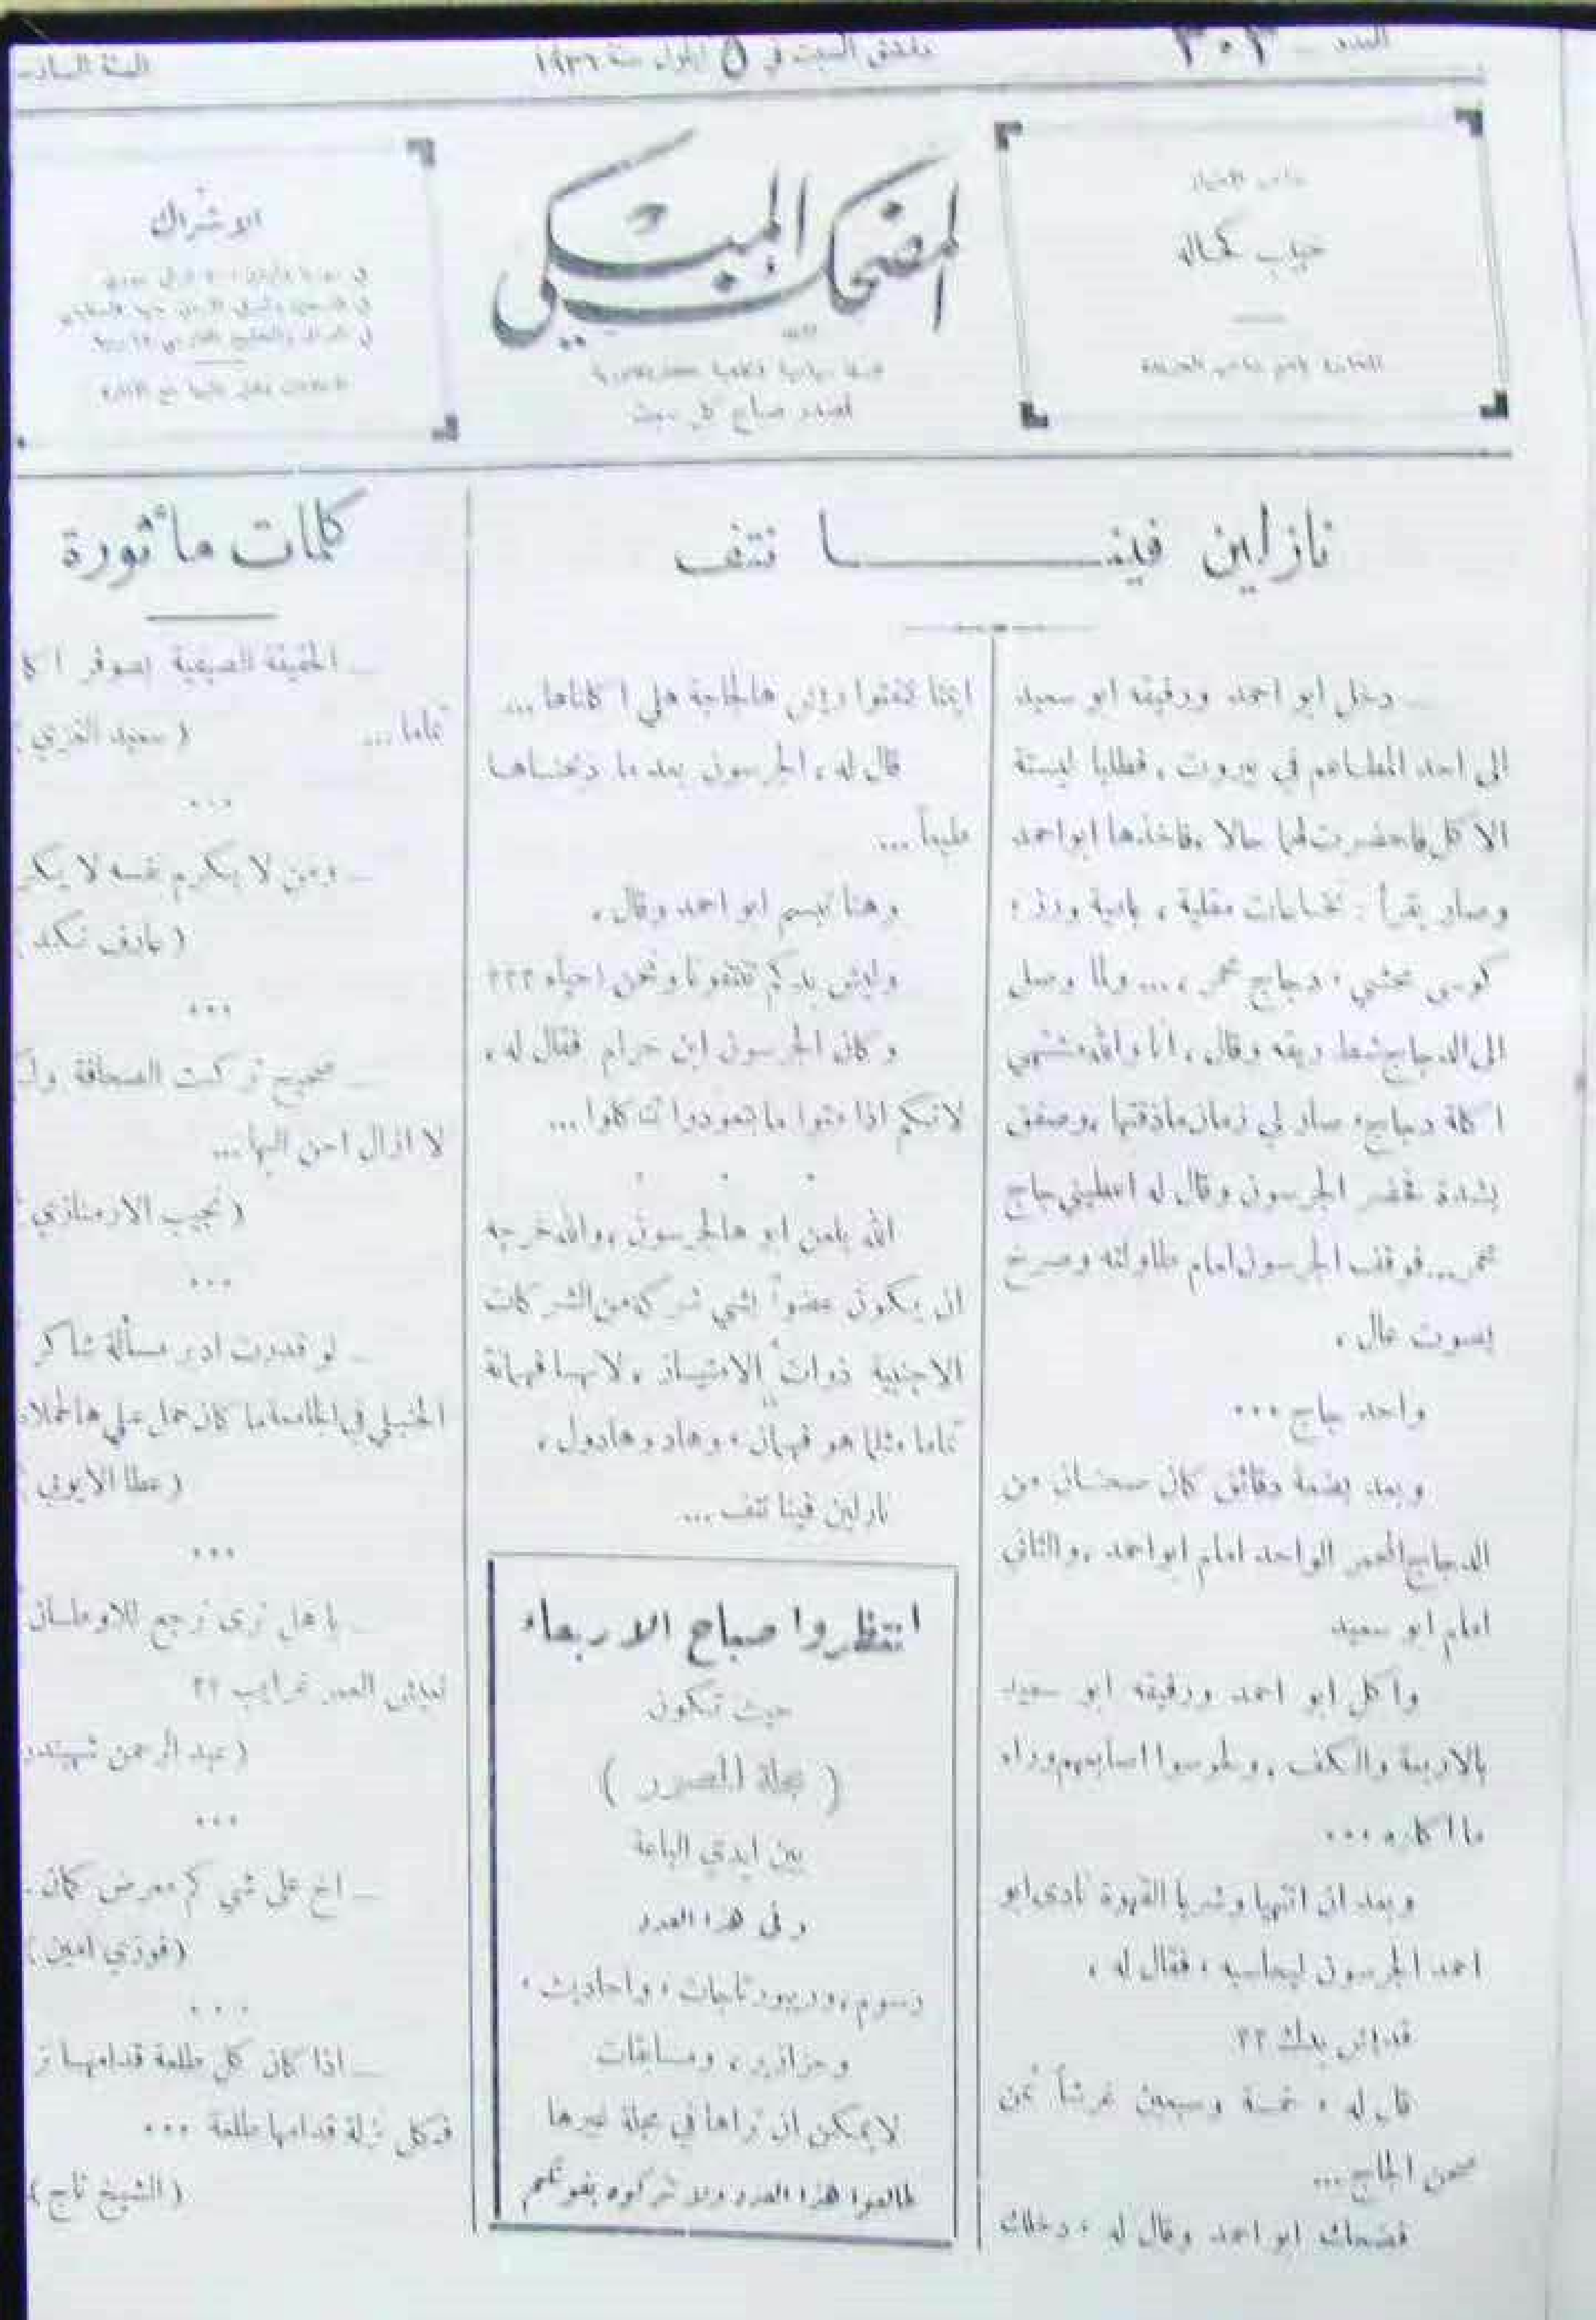 العدد - ٣٠٢
دمشق السبت في ٥ ايلول سنة ١٩٣٦
السنة السادسـ
صاحب الجريدة
حبيب كحاله
المضحك المبكي
تصدر صباح كل سبت
الاشتراك
نازلين فينـــا نتف
ـ دخل ابو احمد ورفيقه ابو سعيد
الى احد المطاعم في بيروت ، فطلبا ليستة
الاكل فاحضرت لهما حالا ، فاخذها ابو احمد
وصار يقرأ : نخاعات مقلية ، بامية ورز ؛
كوسى محشي ، دجاج محمر ، ... ولما وصل
الى الدجاج شط ريقه وقال ، انا والله مشتهي
اكلة دجاج، صار لي زمان ماذقتها ، وصفق
بشدة فحضر الجرسون وقال له اعطيني جاج
محمر... فوقف الجرسون امام طاولته وصرخ
بصوت عال ،
واحد جاج ...
وبعد بضعة دقائق كان صحنان من
الدجاج المحمر الواحد امام ابو احمد ، والثاني
امام ابو سعيد
واكل ابو احمد ورفيقه ابو سعيد
بالاربعة والكف ، وطوسوا اصابيعهم وراء
ما اكلوه ...
وبعد ان انتهيا وشربا القهوة نادى ابو
احمد الجرسون ليحاسبه ، فقال له ،
قديش بدك ؟؟
قال له ، خمسة وسبعين غرشاً ثمن
صحن الجاج ...
فضحك ابو احمد وقال له ، دخلك
ايمتا نتفتوا ريش هالجاجة هلي اكلناها ...
قال له ، الجرسون بعد ما ذبحناها
طبعاً ...
وهنا تبسم ابو احمد وقال ،
وليش بدكم تنتفونا ونحن احياء ؟؟؟
وكان الجرسون ابن حرام فقال له ،
لانكم اذا متوا ما بتعودوا تتاكلوا ...
الله يلعن ابو هالجرسون ، والله خرجه
ان يكون عضواً بشي شركة من الشركات
الاجنبية ذوات الامتياز ، لانها فهمانة
تماما مثلما هو فهمان ، وهاد وهادول ،
نازلين فينا نتف ...
انتظروا صباح الاربعاء
حيث تكون
( مجلة المصور )
بين ايدي الباعة
وفي هذا العدد
رسوم ، وريبورتاجات ، واحاديث ،
وحزازير ، ومسابقات
لا يمكن ان تراها في مجلة غيرها
طالعوا هذا العدد ولا تتركوه يفوتكم
كلمات مأثورة
تماما ... ( سعيد الغزي )
ـ ومن لا يكرم نفسه لا يكر
( عارف نكد )
ـ صحيح تركت الصحافة ولـ
لا ازال احن اليها ...
( نجيب الارمنازي )
ـ لو قدرت ادبر مسألة شاكر
( عطا الايوبي )
ـ يا هل ترى نرجع للاوطان
( عبد الرحمن شهبندر
ـ اخ على شي كم معرض كمان
( فوزي امين )
ـ اذا كان كل طلعة قدامها نز
فكل نزلة قدامها طلعة ...
( الشيخ تاج )